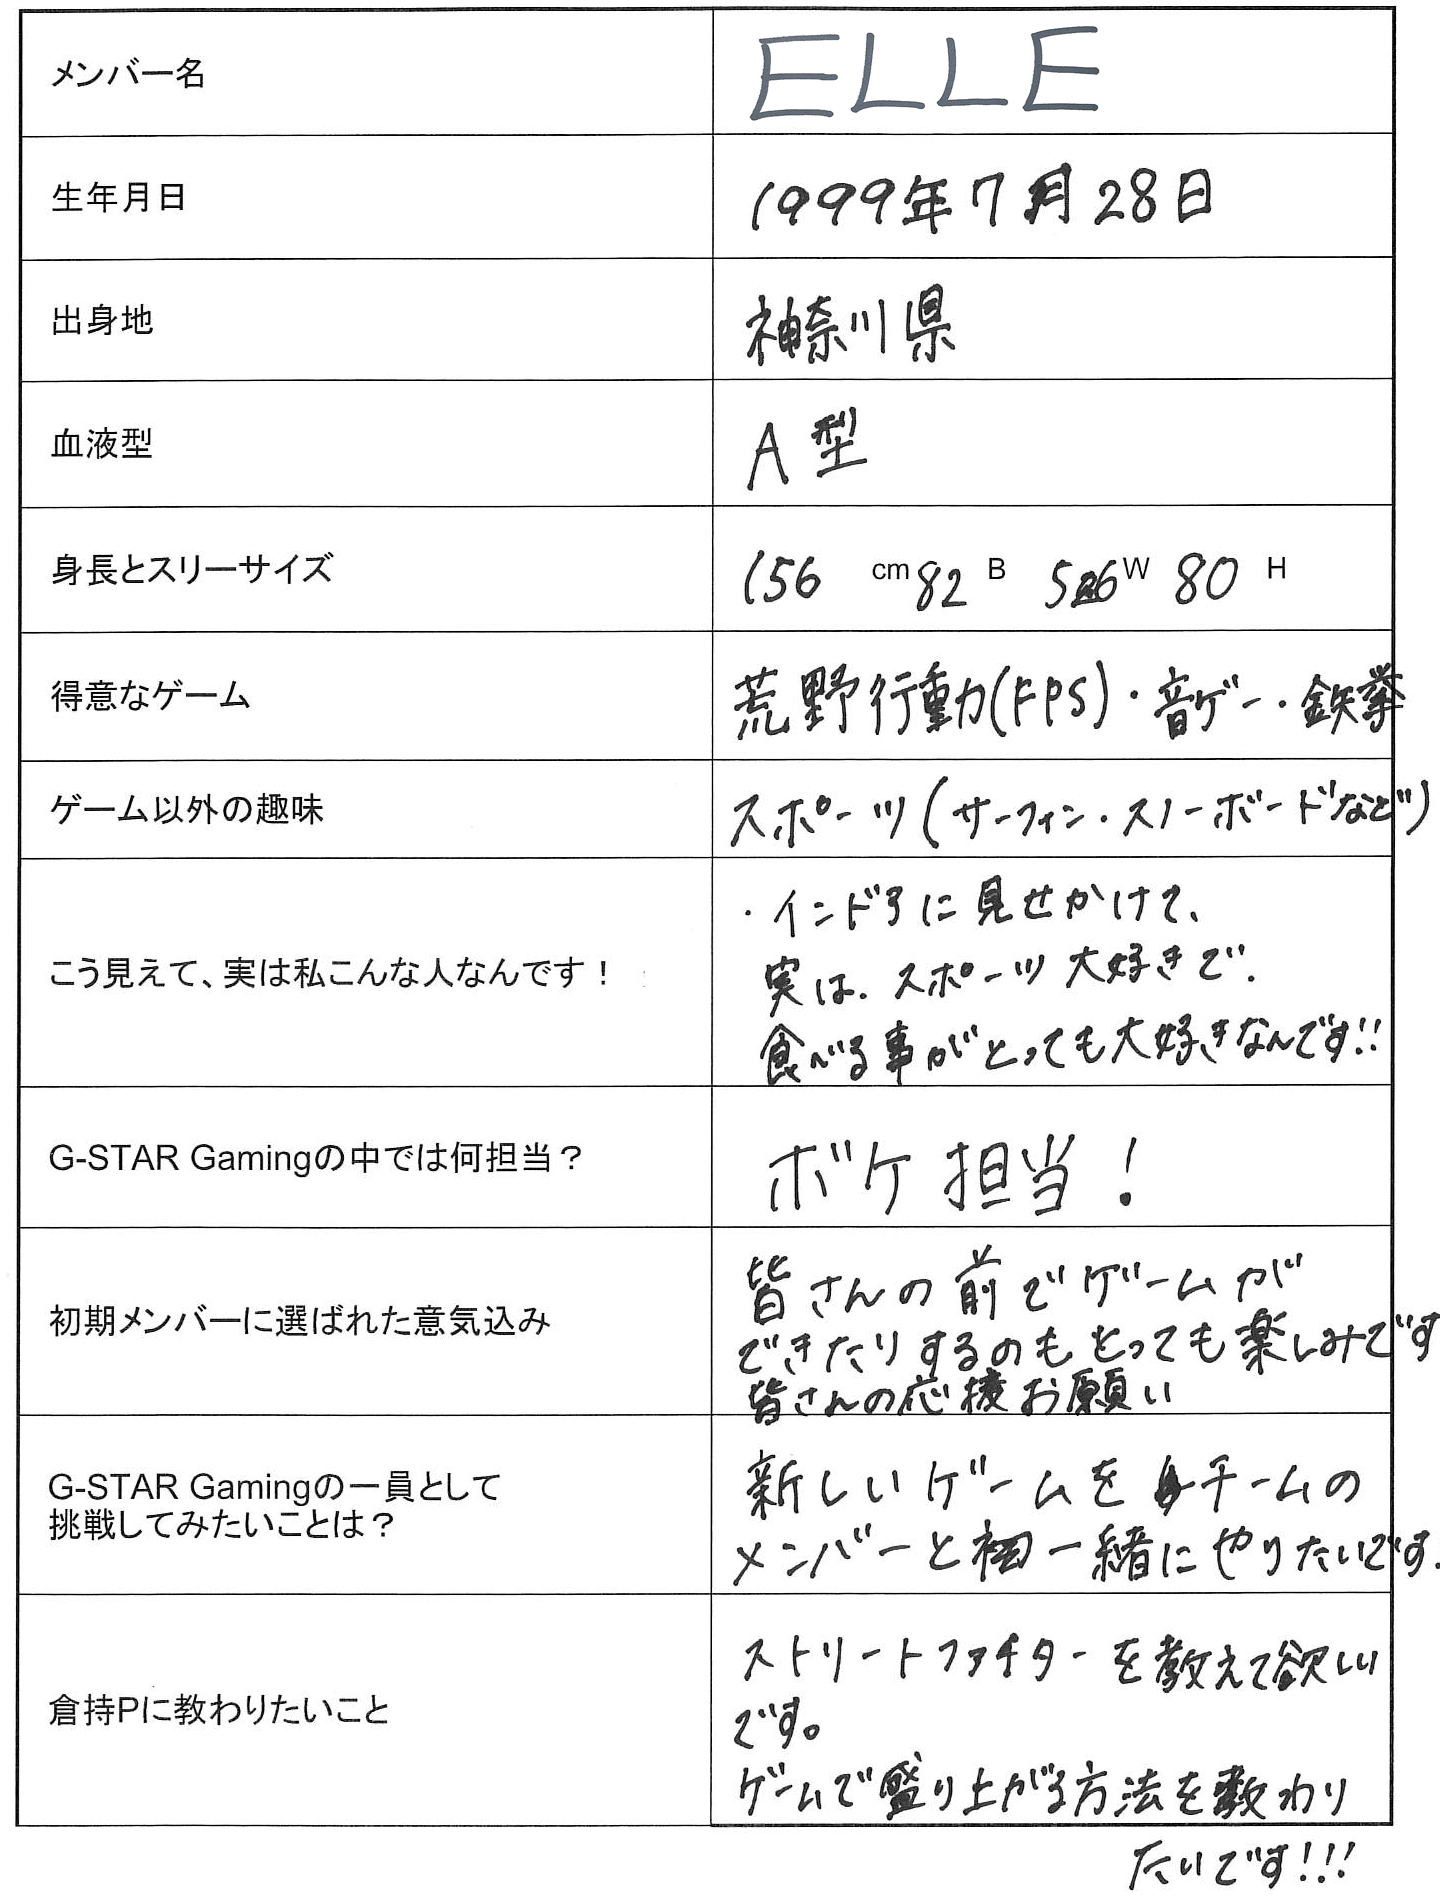 メンバー名
ELLE
生年月日
1999年7月28日
出身地
神奈川県
血液型
A型
身長とスリーサイズ
156 cm 82 B 56 W 80 H
得意なゲーム
荒野行動(FPS)・音ゲー・鉄拳
ゲーム以外の趣味
スポーツ(サーフィン・スノーボードなど)
こう見えて、実は私こんな人なんです!
・インドアに見せかけて、
実は、スポーツ大好きで、
食べる事がとっても大好きなんです!!
G-STAR Gamingの中では何担当?
ボケ担当!
初期メンバーに選ばれた意気込み
皆さんの前でゲームが
できたりするのもとっても楽しみです
皆さんの応援お願い
G-STAR Gamingの一員として
挑戦してみたいことは?
新しいゲームをチームの
メンバーと一緒にやりたいです.
倉持Pに教わりたいこと
ストリートファイターを教えて欲しい
です。
ゲームで盛り上がる方法を教わり
たいです!!!